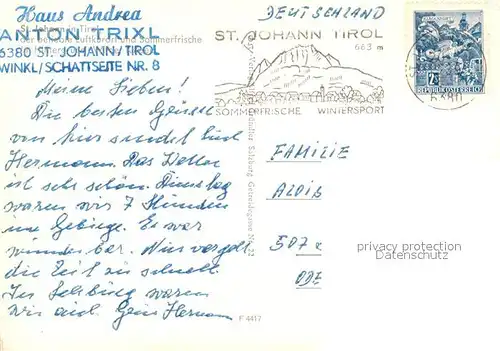 Haus Andrea
ANTON TRIXL
6380 ST. JOHANN/TIROL
WINKL/SCHATTSEITE NR. 8
St. Johann in Tirol
Der beliebte Luftkurort und Sommerfrische
DEUTSCHLAND
ST. JOHANN TIROL
663 m
SOMMERFRISCHE WINTERSPORT
REPUBLIK ÖSTERREICH
Meine Lieben!
Die besten Grüsse
von hier sendet Euch
Hermann. Das Wetter
ist sehr schön. Dienstag
waren wir 7 Stunden
im Gebirge. Es war
wunderbar. Nur vergeht
die Zeit zu schnell.
In Salzburg waren
wir auch. Gruss Hermann
FAMILIE
ALOIS
507
ODE
privacy protection
watermark
F 4417